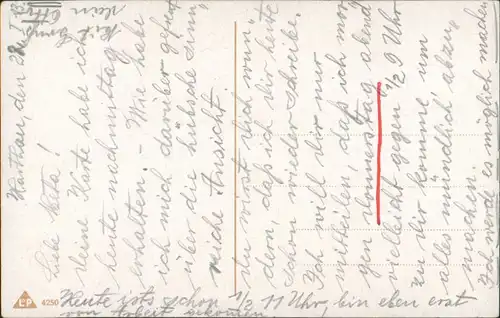 Harthau, den 28.
Liebe Meta!
Deine Karte habe ich
heute nachmittag
erhalten. - Wie habe
ich mich darüber gefreut
über die hübsche sinn-
reiche Ansicht.
Du wirst dich wun-
dern, daß ich dir heute
schon wieder schreibe.
Ich will dir nur
mitteilen, daß ich mor-
gen donnerstag abend
vielleicht gegen 1/2 9 Uhr
zu dir komme um
alles mündlich abzu-
machen.
Ich werde es möglich machen
Heute ists schon 1/2 11 Uhr, bin eben erst
von Arbeit gekommen.
Mit Gruß
dein
L&P 4250